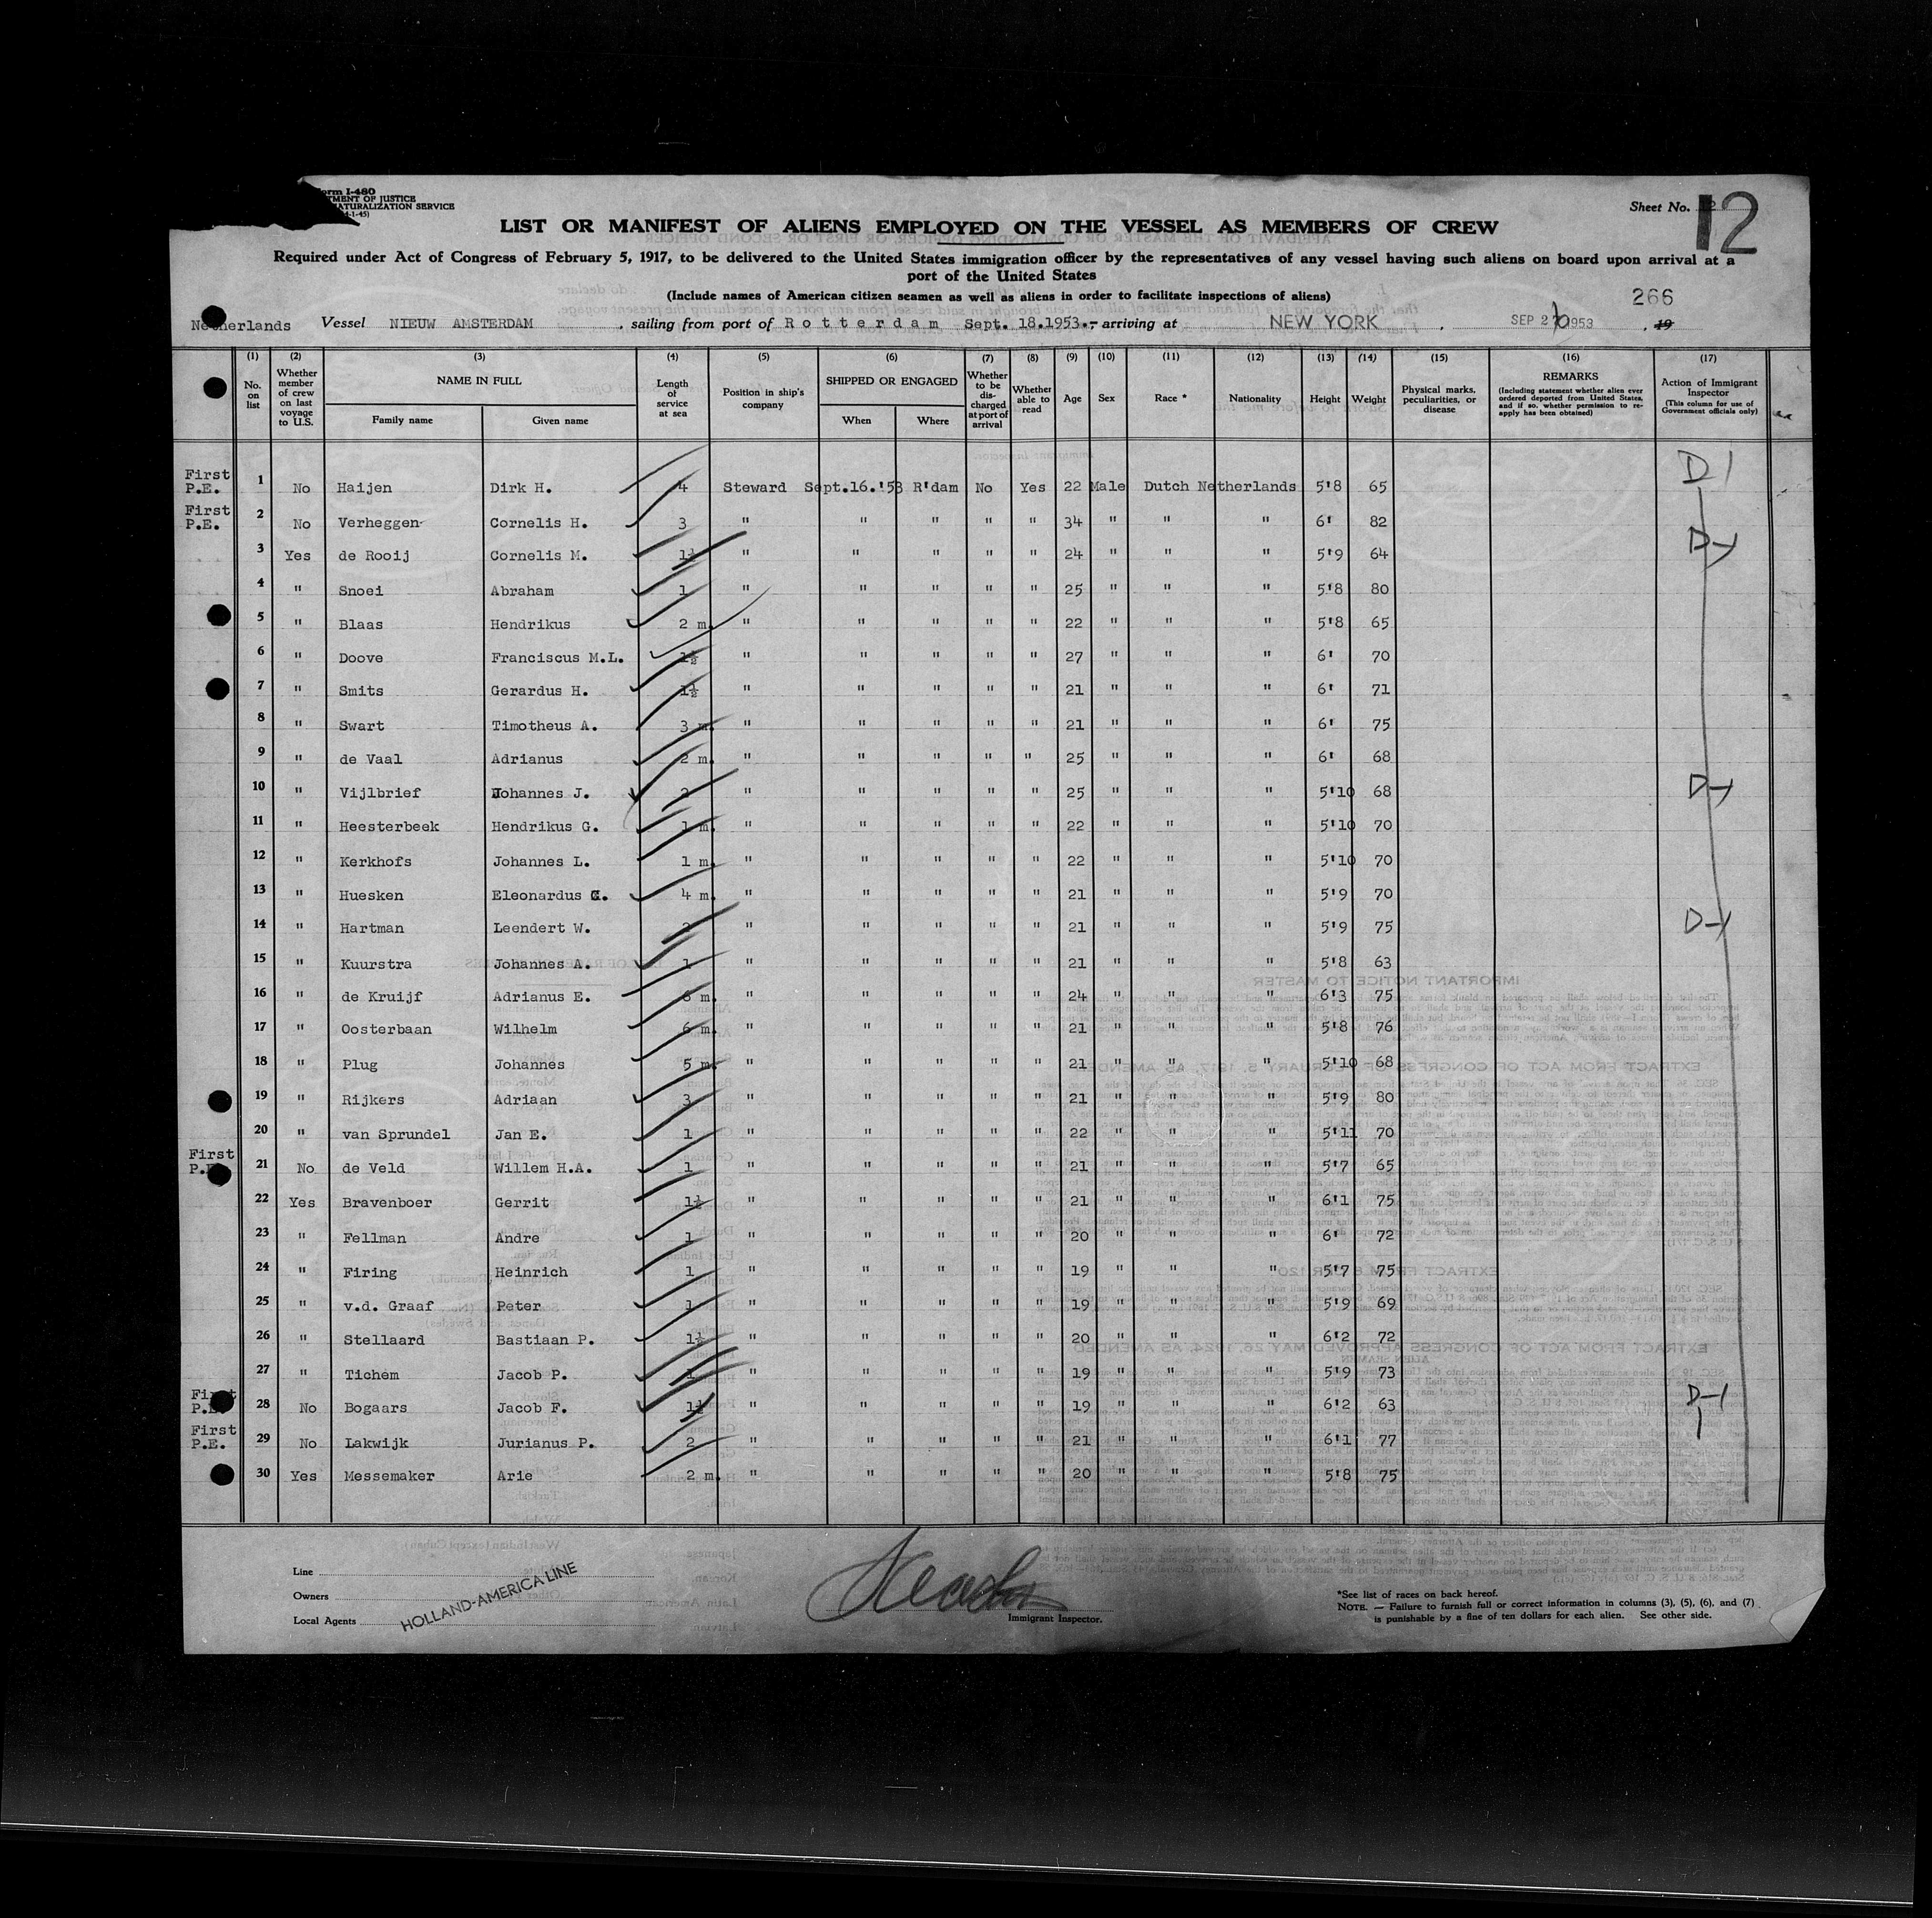 Form I-480
TMENT OF JUSTICE
NATURALIZATION SERVICE
4-1-45)
Sheet No. 12
12
LIST OR MANIFEST OF ALIENS EMPLOYED ON THE VESSEL AS MEMBERS OF CREW
Required under Act of Congress of February 5, 1917, to be delivered to the United States immigration officer by the representatives of any vessel having such aliens on board upon arrival at a
port of the United States
(Include names of American citizen seamen as well as aliens in order to facilitate inspections of aliens)
266
Netherlands Vessel NIEUW AMSTERDAM , sailing from port of Rotterdam Sept. 18.1953.- arriving at NEW YORK , SEP 2 1953 , 19
(1) (2) (3) (4) (5) (6) (7) (8) (9) (10) (11) (12) (13) (14) (15) (16) (17)
No. on list
Whether member of crew on last voyage to U.S.
NAME IN FULL
Family name Given name
Length of service at sea
Position in ship's company
SHIPPED OR ENGAGED
When Where
Whether to be discharged at port of arrival
Whether able to read
Age
Sex
Race *
Nationality
Height
Weight
Physical marks, peculiarities, or disease
REMARKS
(Including statement whether alien ever ordered deported from United States, and if so, whether permission to reapply has been obtained)
Action of Immigrant Inspector
(This column for use of Government officials only)
First P.E. 1 No Haijen Dirk H. 4 Steward Sept.16.'53 R'dam No Yes 22 Male Dutch Netherlands 5'8 65 D1
First P.E. 2 No Verheggen Cornelis H. 3 " " " " " 34 " " " 6' 82
3 Yes de Rooij Cornelis M. 1½ " " " " " 24 " " " 5'9 64 D-1
4 " Snoei Abraham 1 " " " " " 25 " " " 5'8 80
5 " Blaas Hendrikus 2 m. " " " " " 22 " " " 5'8 65
6 " Doove Franciscus M.L. 1½ " " " " " 27 " " " 6' 70
7 " Smits Gerardus H. 1½ " " " " " 21 " " " 6' 71
8 " Swart Timotheus A. 3 m. " " " " " 21 " " " 6' 75
9 " de Vaal Adrianus 2 m. " " " " " 25 " " " 6' 68
10 " Vijlbrief Johannes J. 2 " " " " " 25 " " " 5'10 68 D-1
11 " Heesterbeek Hendrikus G. 1 m. " " " " " 22 " " " 5'10 70
12 " Kerkhofs Johannes L. 1 m. " " " " " 22 " " " 5'10 70
13 " Huesken Eleonardus G. 4 m. " " " " " 21 " " " 5'9 70
14 " Hartman Leendert W. 2 " " " " " 21 " " " 5'9 75 D-1
15 " Kuurstra Johannes A. 1 " " " " " 21 " " " 5'8 63
16 " de Kruijf Adrianus E. m. " " " " " 24 " " " 6'3 75
17 " Oosterbaan Wilhelm 6 m. " " " " " 21 " " " 5'8 76
18 " Plug Johannes 5 m. " " " " " 21 " " " 5'10 68
19 " Rijkers Adriaan 3 " " " " " 21 " " " 5'9 80
20 " van Sprundel Jan E. 1 " " " " " 22 " " " 5'11 70
First P.E. 21 No de Veld Willem H.A. 1 " " " " " 21 " " " 5'7 65
22 Yes Bravenboer Gerrit 1½ " " " " " 21 " " " 6'1 75
23 " Fellman Andre 1 " " " " " 20 " " " 6' 72
24 " Firing Heinrich 1 " " " " " 19 " " " 5'7 75
25 " v.d. Graaf Peter 1 " " " " " 19 " " " 5'9 69
26 " Stellaard Bastiaan P. 1½ " " " " " 20 " " " 6'2 72
27 " Tichem Jacob P. 1 " " " " " 19 " " " 5'9 73
First P.E. 28 No Bogaars Jacob F. 1½ " " " " " 19 " " " 6'2 63 D-1
First P.E. 29 No Lakwijk Jurianus P. 2 " " " " " 21 " " " 6'1 77
30 Yes Messemaker Arie 2 m. " " " " " 20 " " " 5'8 75
Line
Owners
Local Agents
HOLLAND-AMERICA LINE
Immigrant Inspector.
*See list of races on back hereof.
NOTE. — Failure to furnish full or correct information in columns (3), (5), (6), and (7)
is punishable by a fine of ten dollars for each alien. See other side.